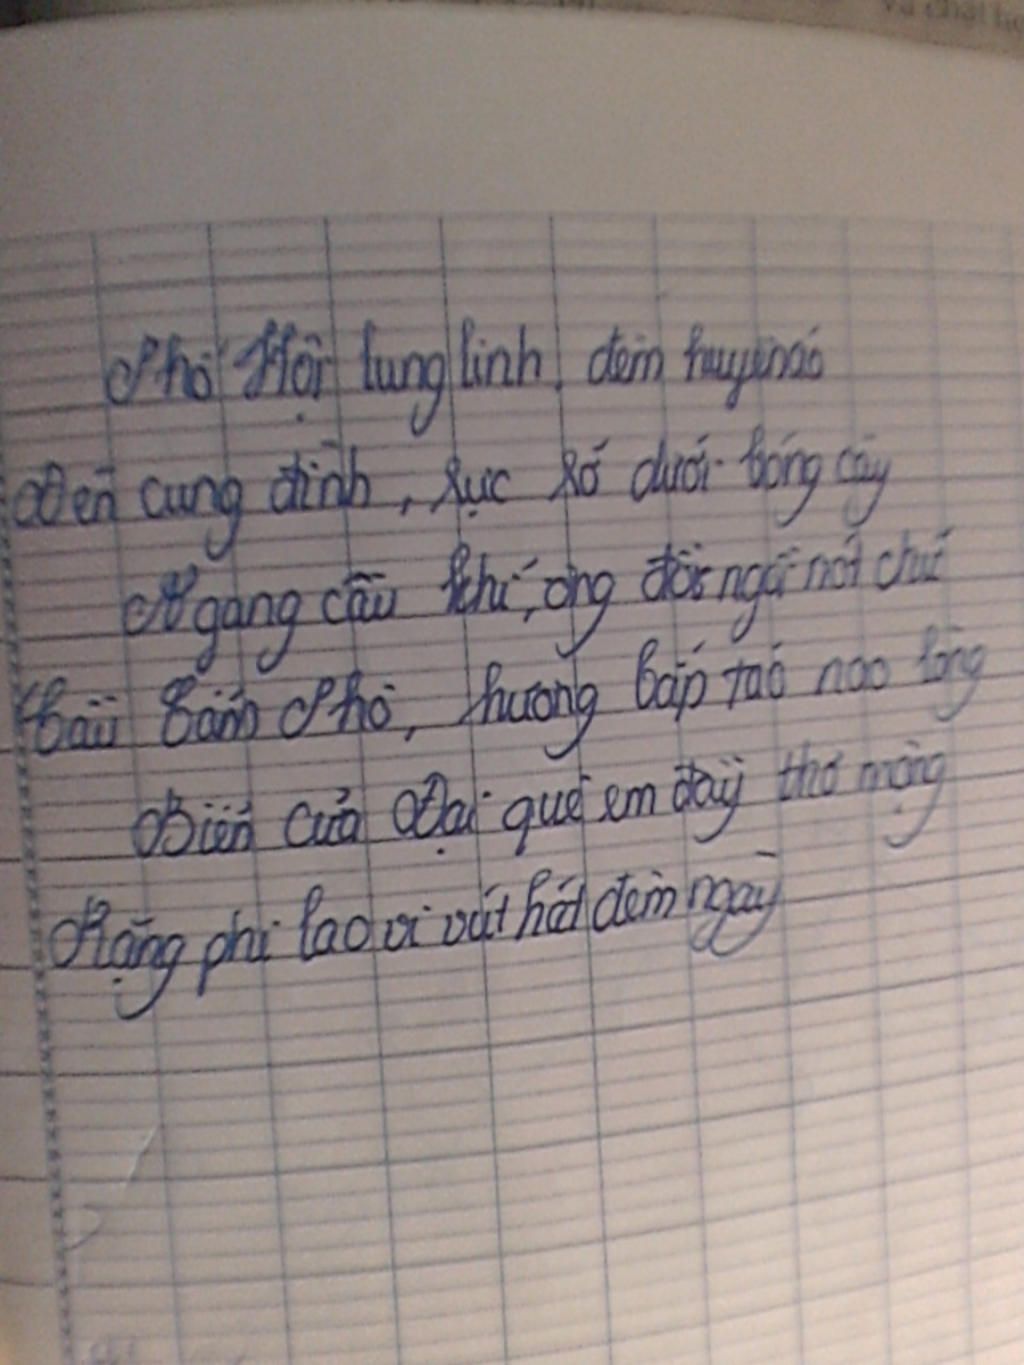 Phố Hội lung linh, đêm huyền ảo
Đèn cung đình, rực rỡ dưới bóng cây
Ngang cầu khỉ, ông đợi ngã nơi chú
Cẩm Phô, hương bắp nao lòng
Biển cửa Đại quê em đầy thơ mộng
Rặng phi lao vi vút hát đêm ngày